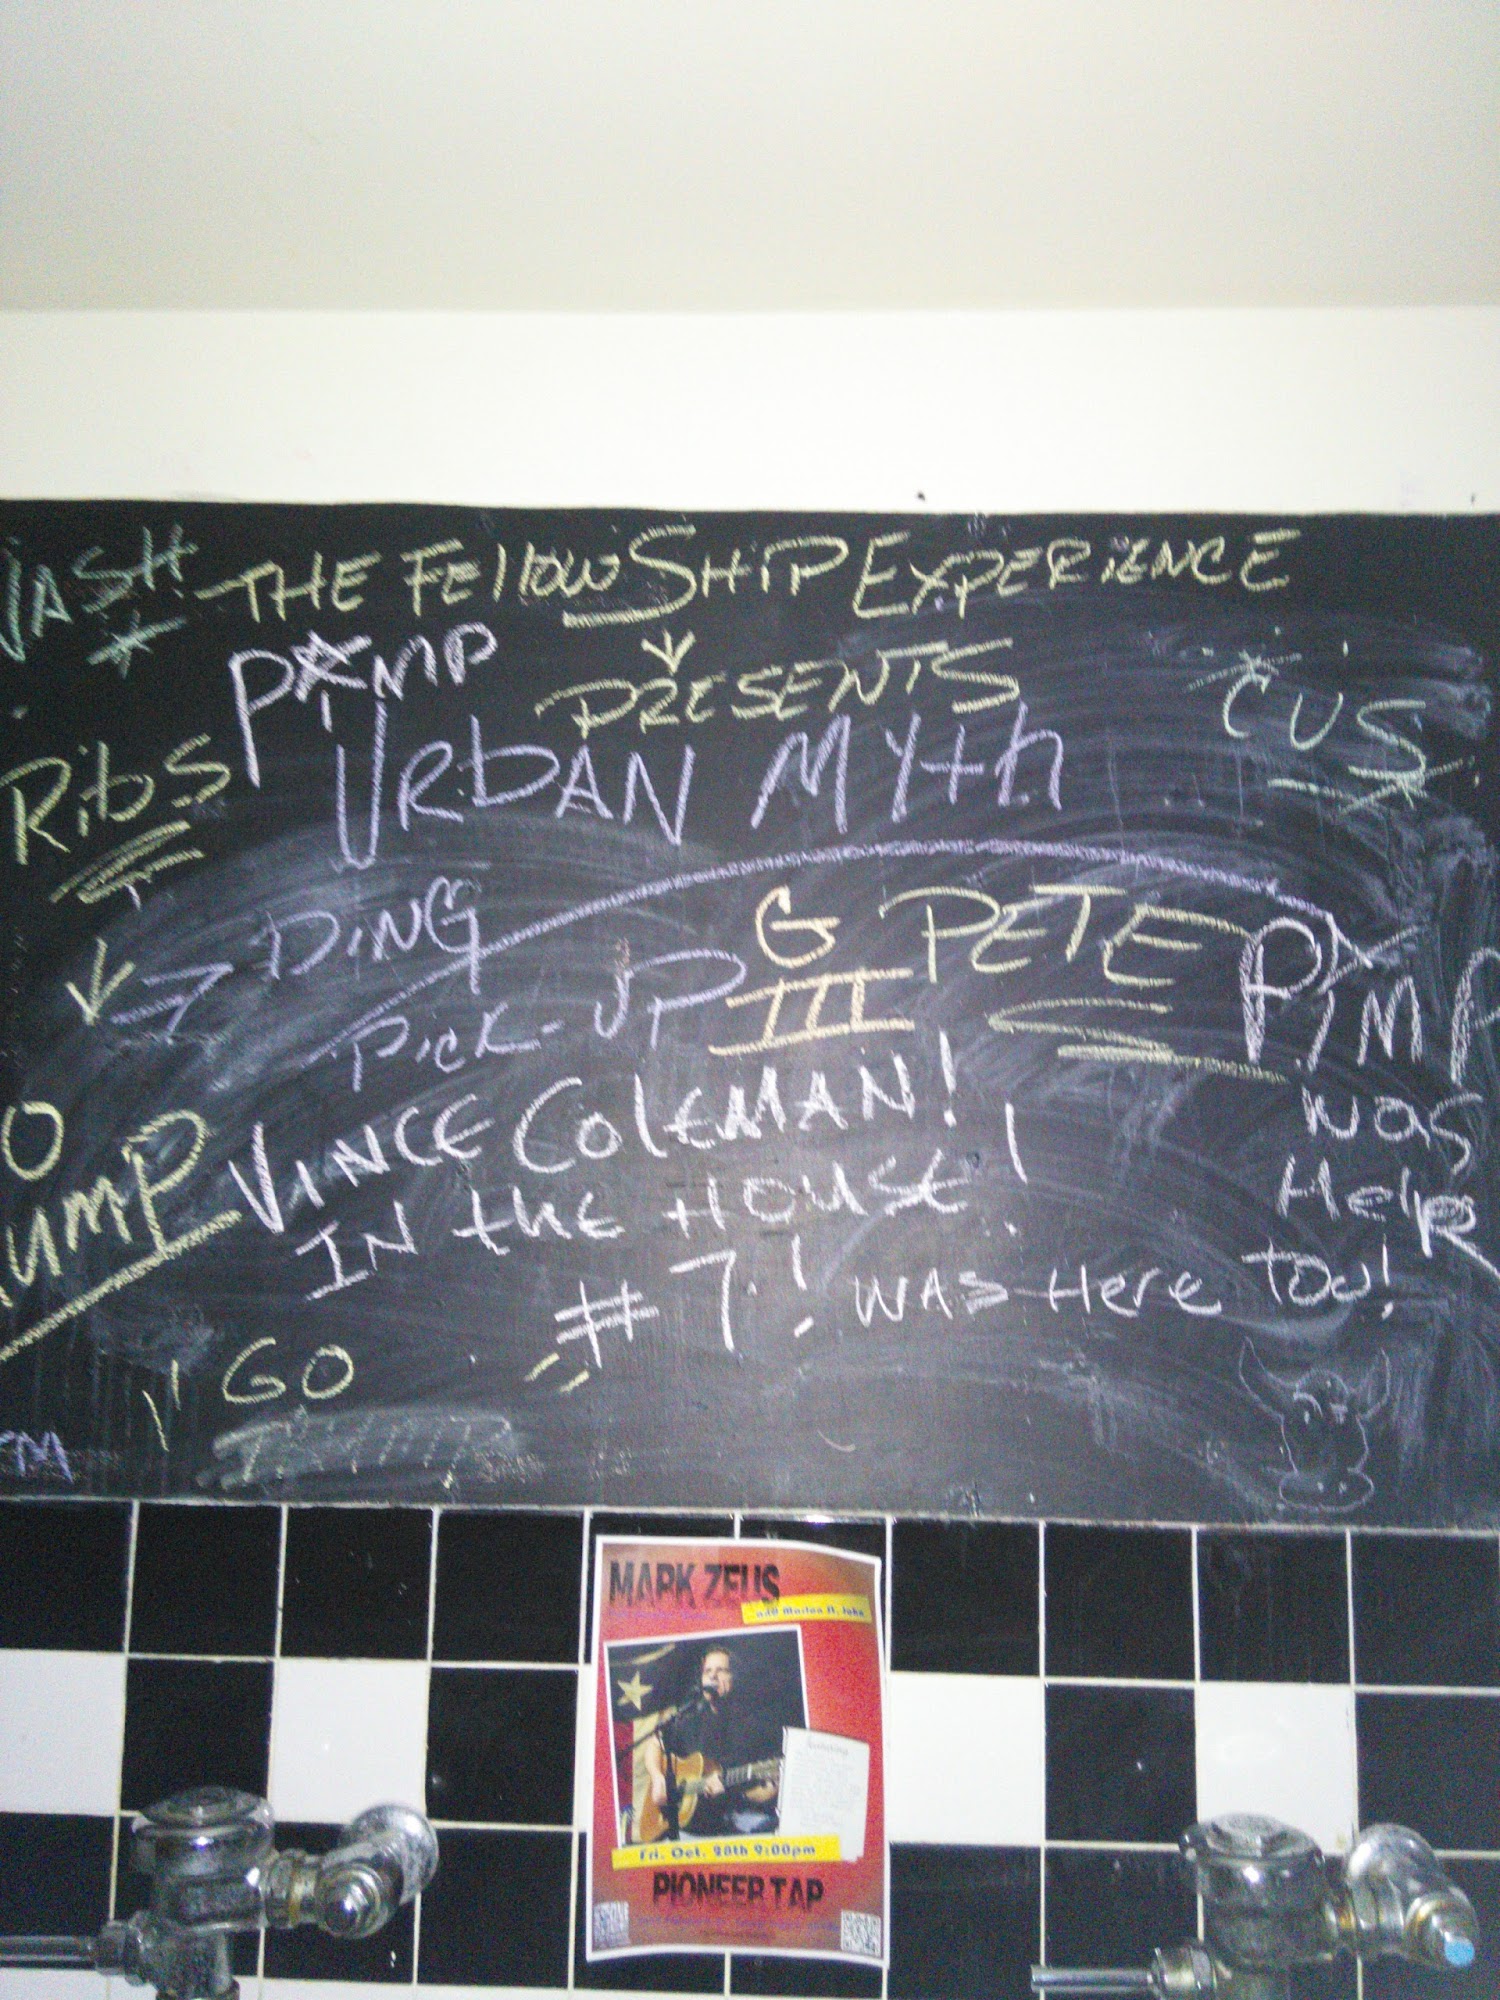 THE FEllowSHiP EXPERiENCE
PRESENTS
PiMP
URbAN MYth
CUS
RibS
DiNG
PicK-UP
G PETE
III
PiMP
was
VINCE ColEMAN!
IN thE HOUSE!
# 7! WAS Here TOO!
GO
MARK ZEUS
Fri. Oct. 28th 9:00pm
PIONEER TAP